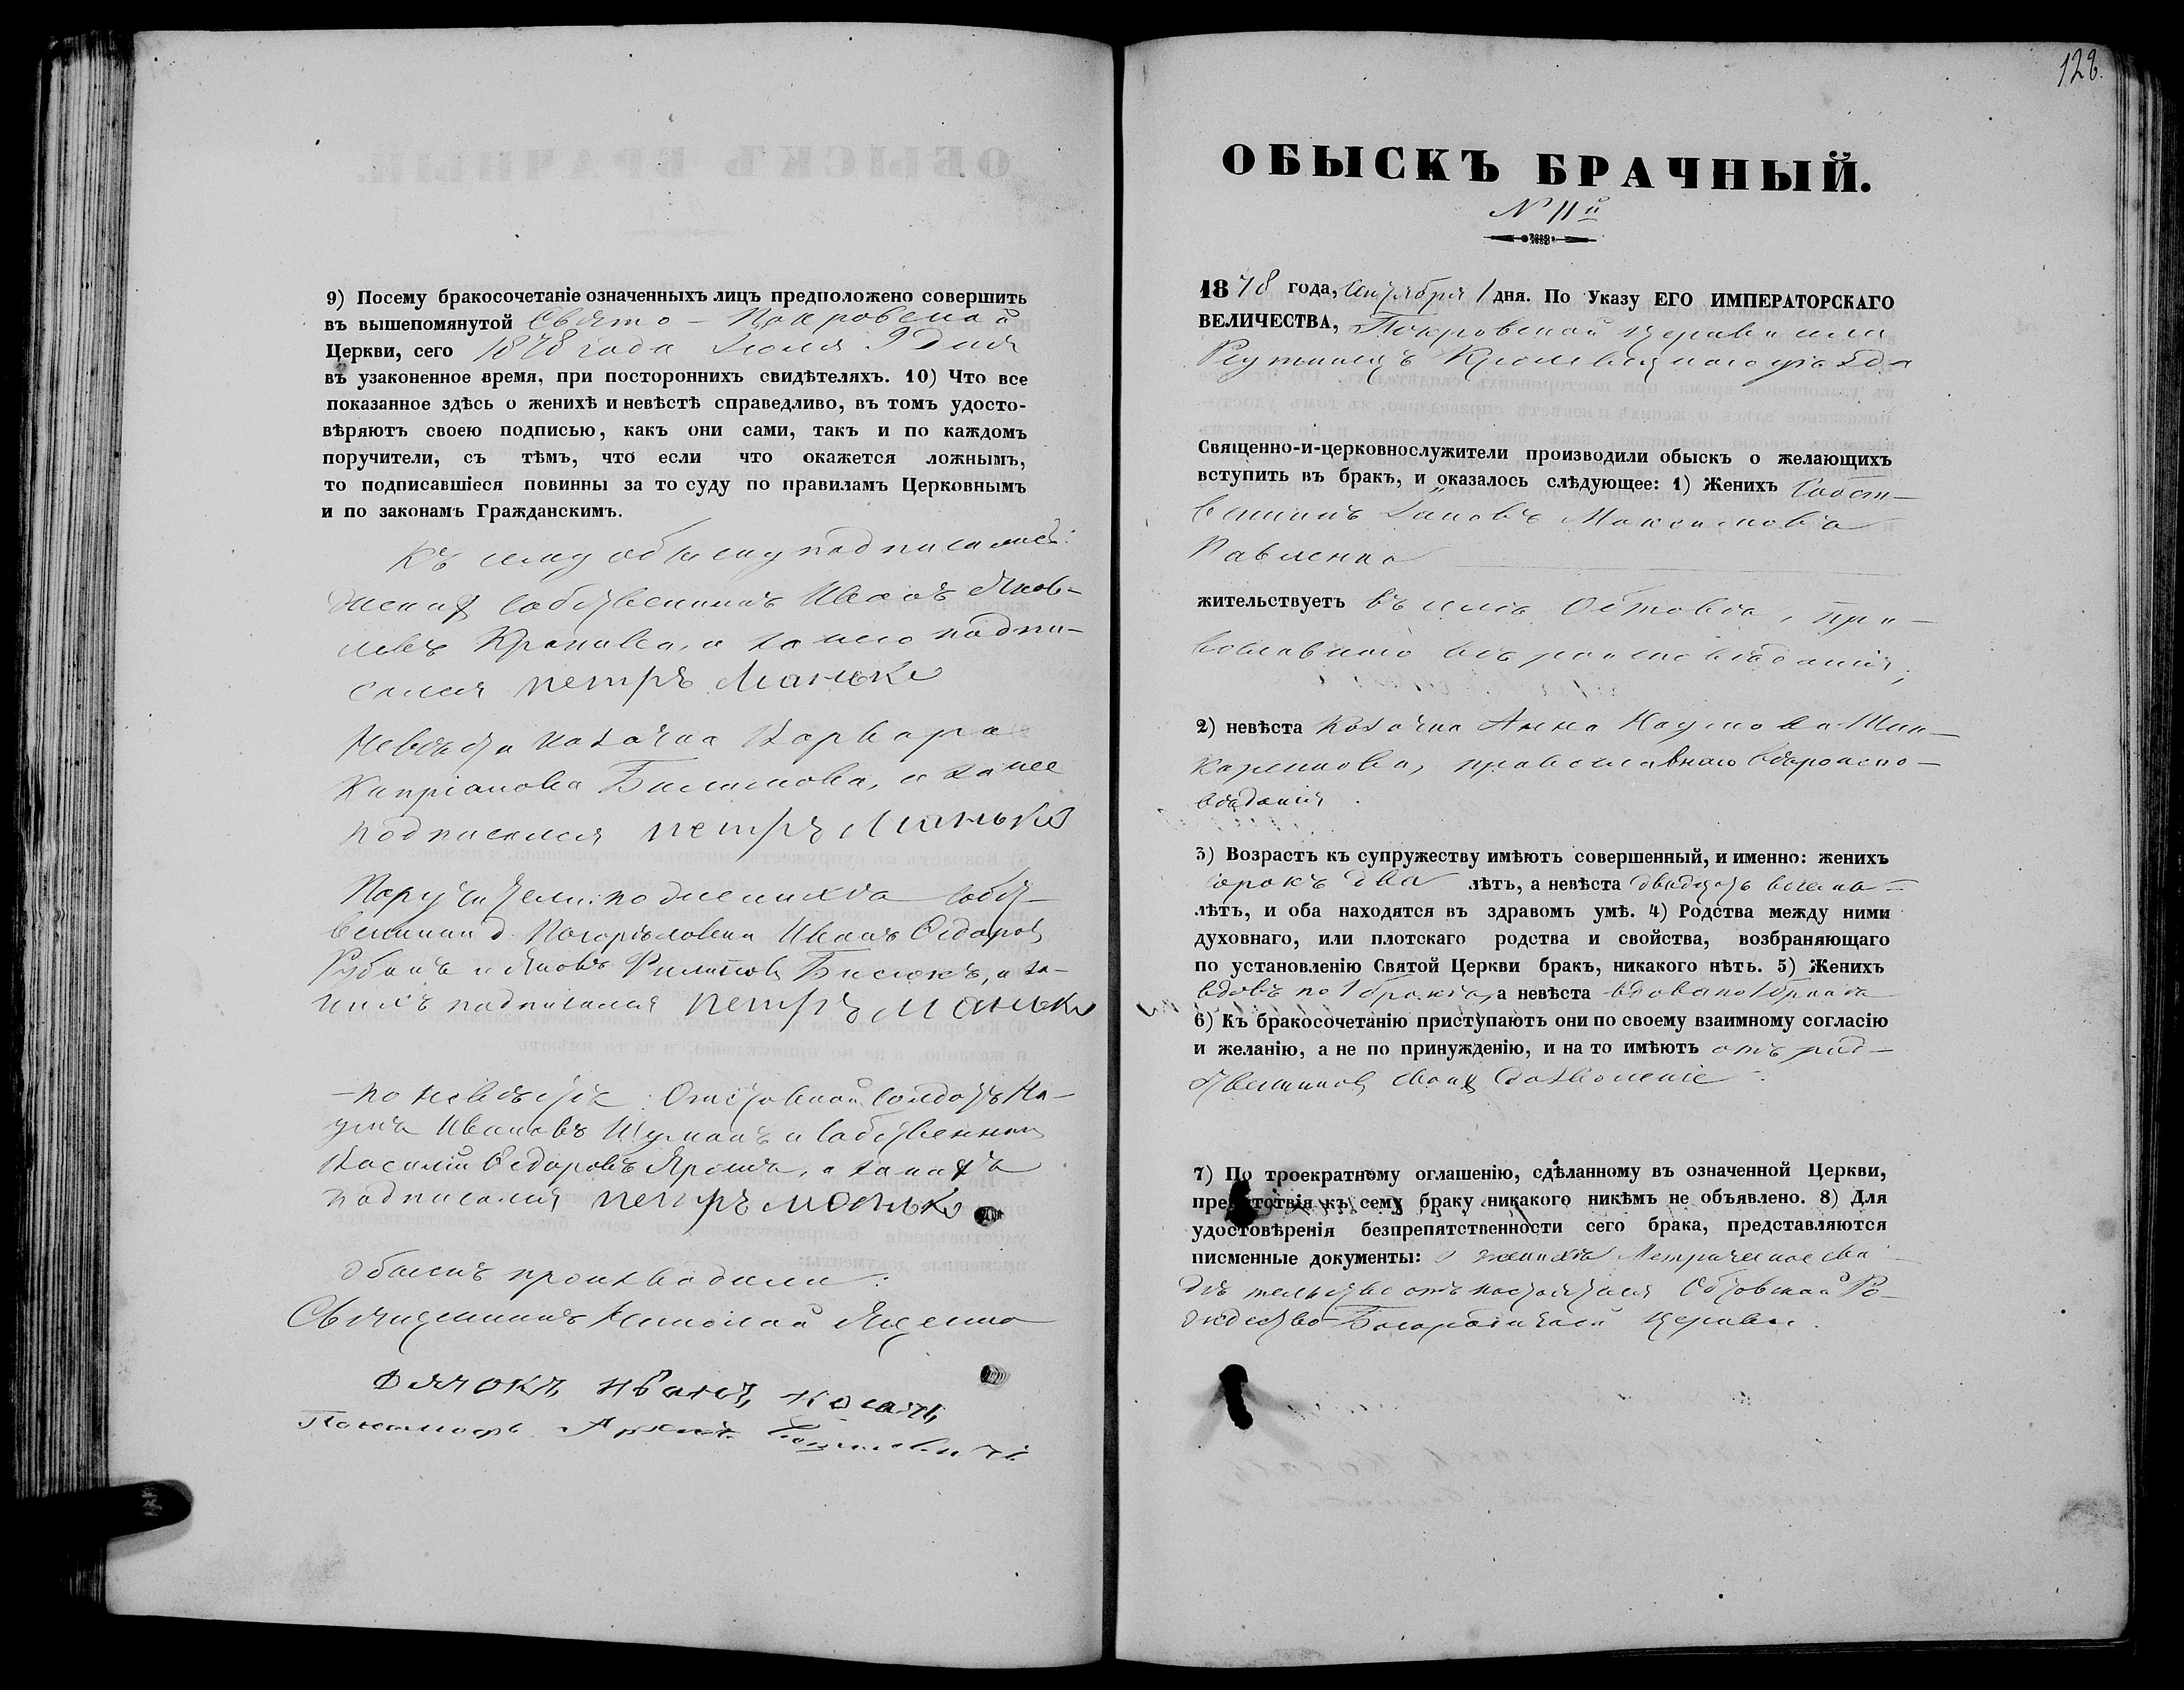 9) Посему бракосочетаніе означенныхъ лицъ предположено совершить
въ вышепомянутой Свято-Покровской
Церкви, сего 1878 года Іюля 9 дня
въ узаконенное время, при постороннихъ свидѣтеляхъ. 10) Что все
показанное здѣсь о женихѣ и невѣстѣ справедливо, въ томъ удосто-
вѣряютъ своею подписью, какъ они сами, такъ и по каждомъ
поручители, съ тѣмъ, что если что окажется ложнымъ,
то подписавшіеся повинны за то суду по правиламъ Церковнымъ
и по законамъ Гражданскимъ.
Къ сему обыску подписались:
женихъ собственникъ Иванъ Яков-
левъ Кропива, а за него подпи-
сался Петръ Манько
Невѣста козачка Варвара
Кипріанова, а за нее
подписался Петръ Манько
Поручители: по женихѣ собст-
венники д. Погорѣловки Иванъ Ѳедоровъ
Рубанъ и Яковъ Филиповъ, а за
нихъ подписался Петръ Манько
по невѣстѣ: Отставной солдатъ На-
умъ Ивановъ Шуманъ и собственникъ
Василій Ѳедоровъ Ярема, а за нихъ
подписался Петръ Манько
Обыскъ производили:
Священникъ Николай Ященко
Дячокъ Иванъ
Пономарь
128.
ОБЫСКЪ БРАЧНЫЙ.
№ 11й
1878 года, Сентября 1 дня. По Указу ЕГО ИМПЕРАТОРСКАГО
ВЕЛИЧЕСТВА, Покровской церкви села
Реутинецъ Кролевецкаго уѣзда
Священно-и-церковнослужители производили обыскъ о желающихъ
вступить въ бракъ, и оказалось слѣдующее: 1) Женихъ Собст-
венникъ Максимовъ
Павленко
жительствуетъ въ селѣ, пра-
вославнаго вѣроисповѣданія;
2) невѣста Козачка Анна Наумова Шин-
каренкова, православнаго вѣроиспо-
вѣданія.
3) Возрастъ къ супружеству имѣютъ совершенный, и именно: женихъ
сорокъ два лѣтъ, а невѣста двадцать восемь
лѣтъ, и оба находятся въ здравомъ умѣ. 4) Родства между ними
духовнаго, или плотскаго родства и свойства, возбраняющаго
по установленію Святой Церкви бракъ, никакого нѣтъ. 5) Женихъ
вдовъ по 1 бракѣ, а невѣста вдова по 1 бракѣ
6) Къ бракосочетанію приступаютъ они по своему взаимному согласію
и желанію, а не по принужденію, и на то имѣютъ отъ род-
ственниковъ своихъ дозволеніе.
7) По троекратному оглашенію, сдѣланному въ означенной Церкви,
препятствія къ сему браку никакого никѣмъ не объявлено. 8) Для
удостовѣренія безпрепятственности сего брака, представляются
писменные документы: о женихѣ Метрическое сви-
дѣтельство отъ настоятеля Ро-
ждество-Богородичной Церкви.